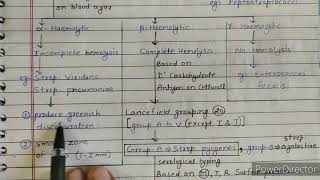 on blood agar
eg Peptostreptococci
α-Haemolytic
β-Haemolytic
γ-Haemolytic
Incomplete hemolysis
Complete Hemolysis
No Hemolysis
eg: Strep. Viridans
Based on
eg: Enterococcus
Strep. pneumoniae
'C' Carbohydrate
Antigen on Cellwall
① produce greenish
Lancefield grouping 20
discolouration
[group A to V (except I & J)]
② zone
Group-A → Strep pyogenes, group-B → strep
agalactiae
of (1-2 mm)
serological typing
Based on M, T, R
Made With
PowerDirector